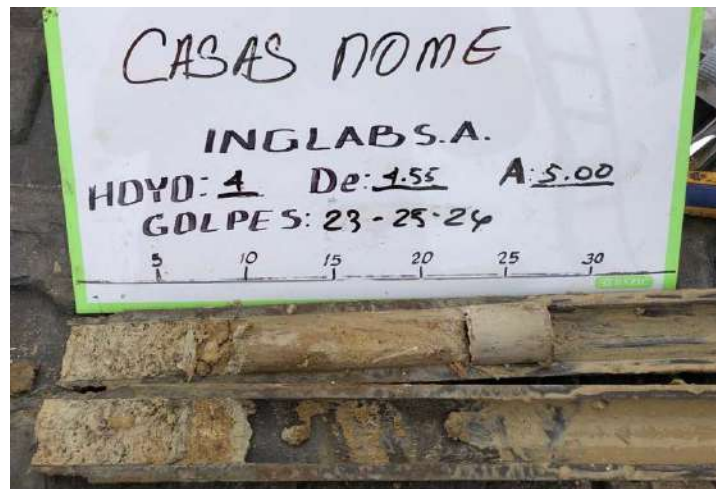 CASAS NOME
INGLAB S.A.
HOYO: 4 De: 4.55 A: 5.00
GOLPES: 23-25-24
5 10 15 20 25 30